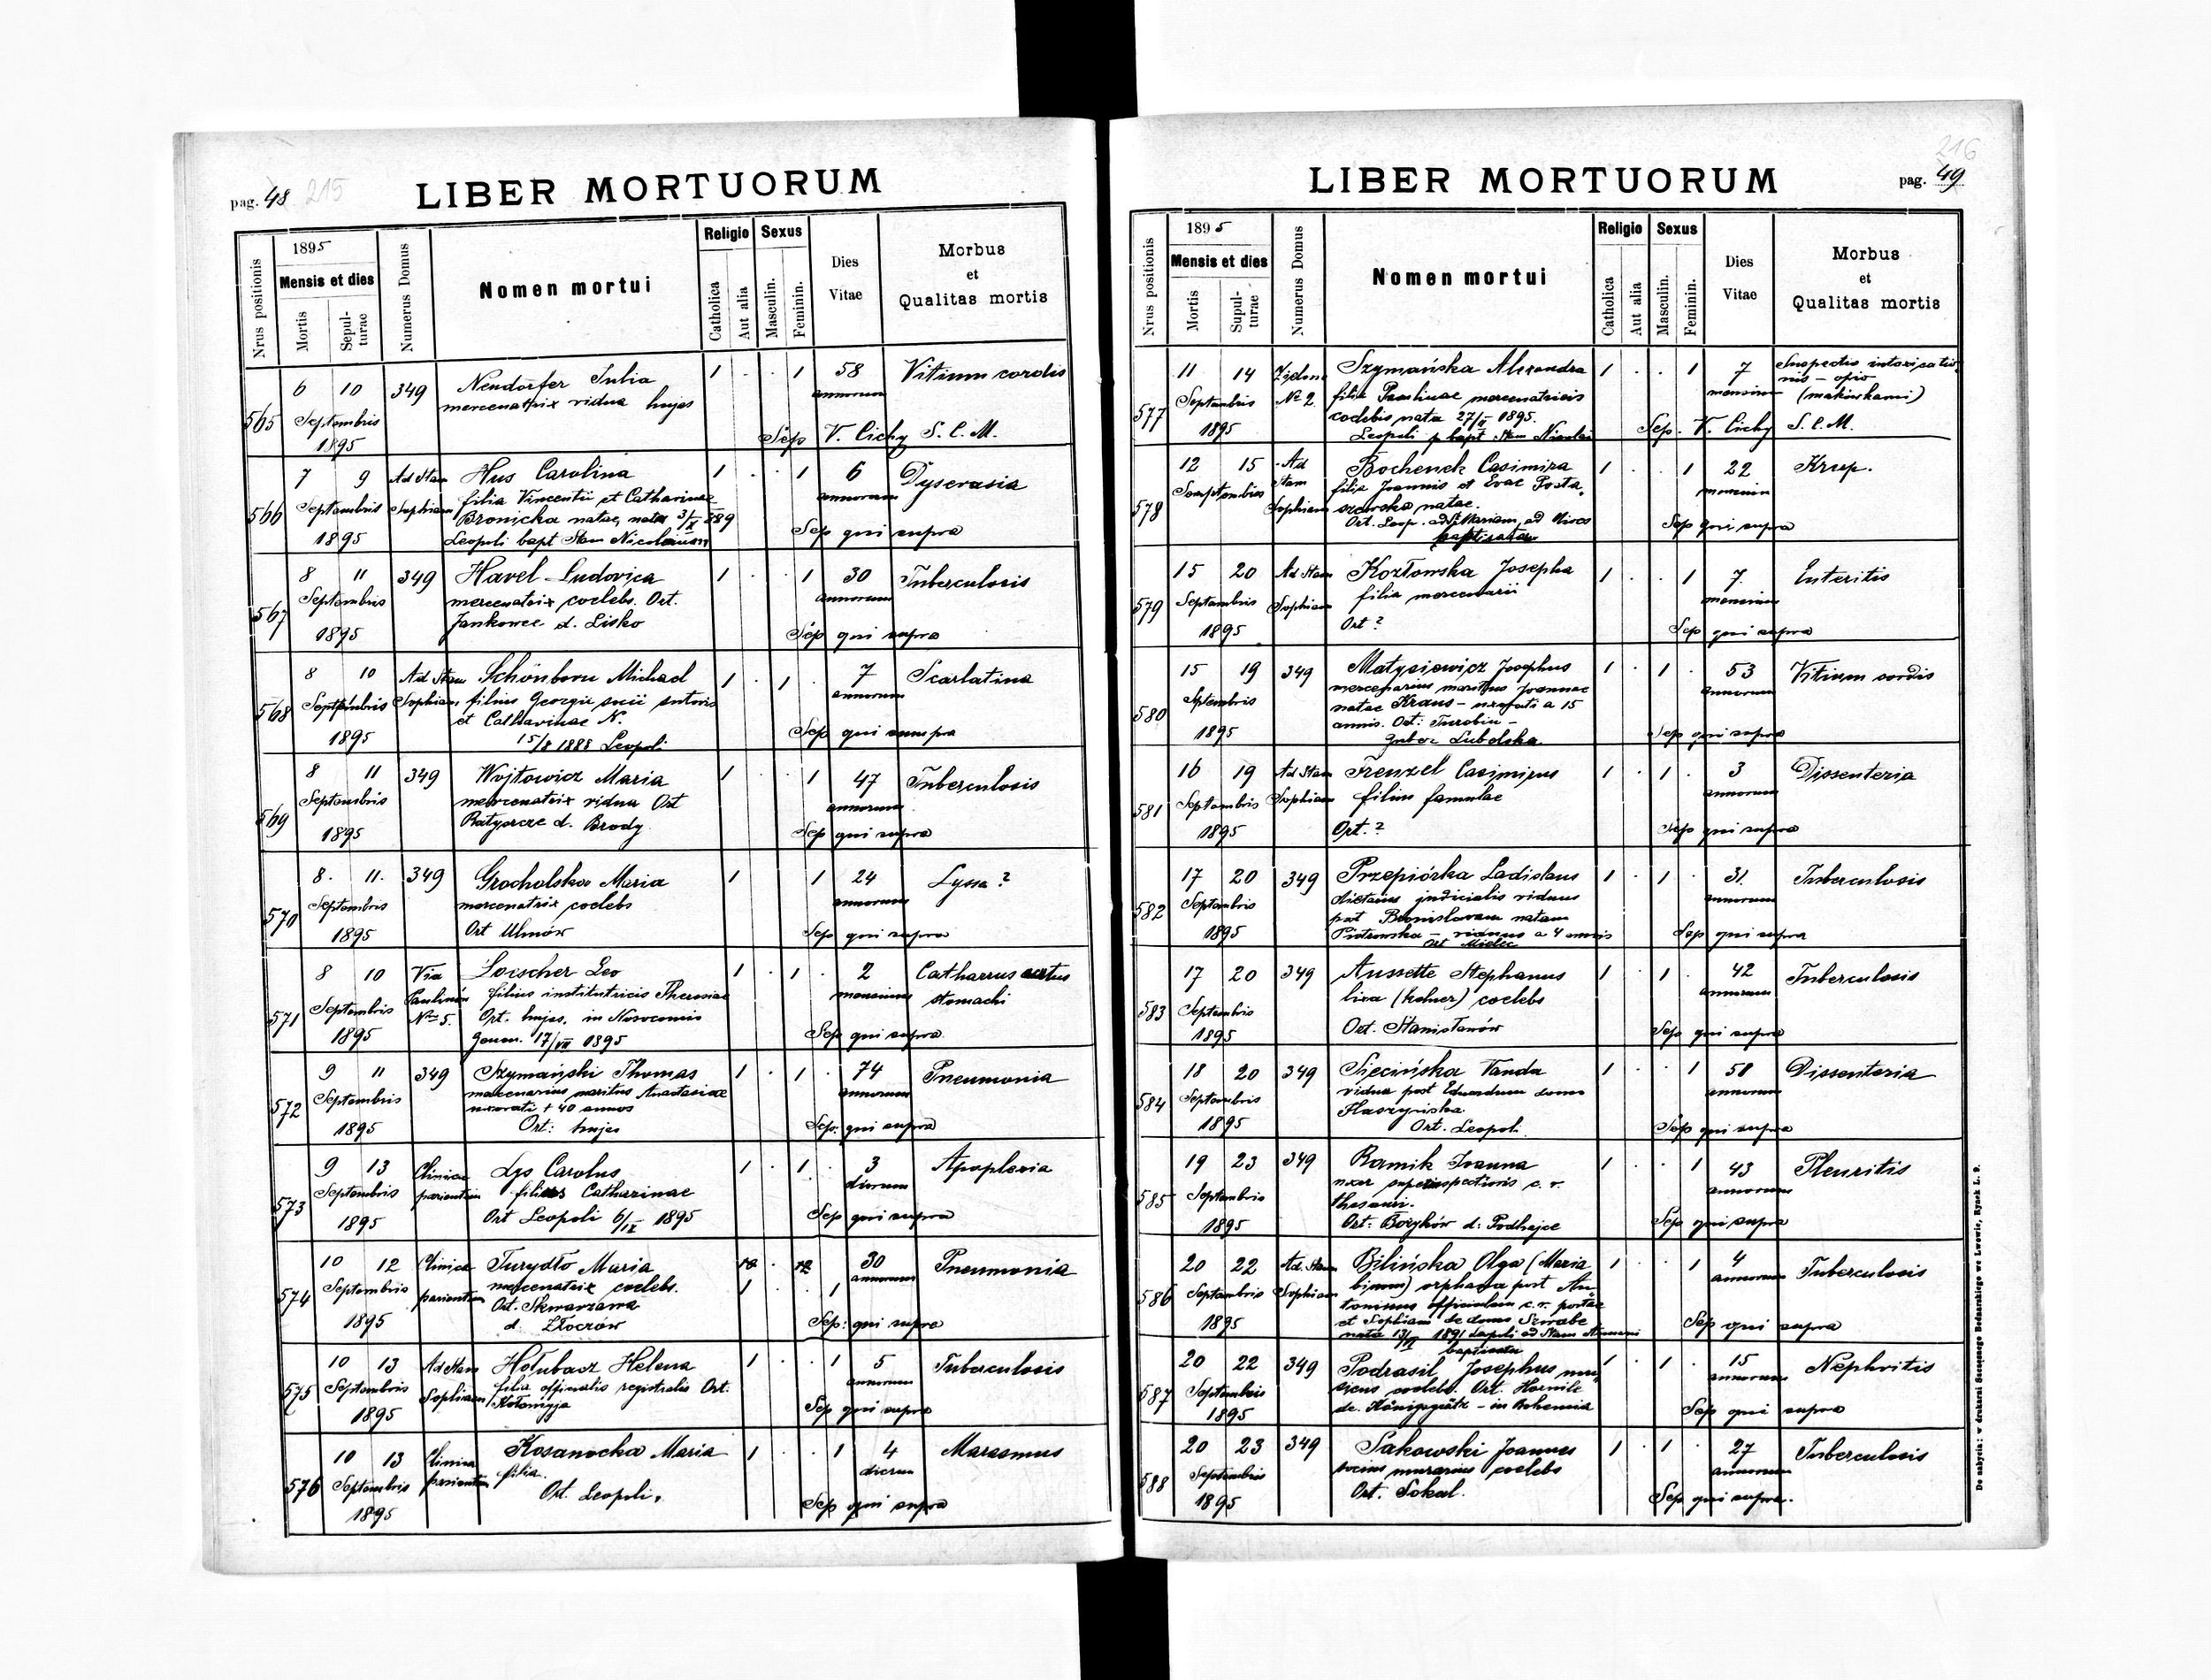 pag. 48 215
LIBER MORTUORUM
Nrus positionis
1895
Mensis et dies
Mortis
Sepulturae
Numerus Domus
Nomen mortui
Religio
Catholica
Aut alia
Sexus
Masculin.
Feminin.
Dies Vitae
Morbus et Qualitas mortis
565 6 10 349 Neudorfer Julia 1 . . 1 58 Vitium cordis
Septembris mercenatrix vidua hujas annorum
1895 Sep V. Cichy S. C. M.
566 7 9 Ad Stam Hus Carolina 1 . . 1 6 Dyscrasia
Septembris Sophiam filia Vincentii et Catharinae annorum
Bronicka natae, nata 3/X 889
1895 Leopoli bapt Stam Nicolaum Sep qui supra
567 8 11 349 Havel Ludovica 1 . . 1 30 Tuberculosis
Septembris mercenatrix coelebs. Ort. annorum
1895 Jankowce d. Lisko Sep qui supra
568 8 10 Ad Stam Schönborn Michael 1 . 1 . 7 Scarlatina
Septembris Sophiam filius Georgii socii sutoris annorum
et Catharinae N.
1895 15/8 1888 Leopoli Sep qui supra
569 8 11 349 Wojtowicz Maria 1 . . 1 47 Tuberculosis
Septembris mercenatrix vidua Ort annorum
1895 Ratyszcze d. Brody Sep qui supra
570 8. 11. 349 Grocholska Maria 1 1 24 Lyssa?
Septembris mercenatrix coelebs annorum
1895 Ort Uhnów Sep qui supra
571 8 10 Via Loescher Leo 1 . 1 . 2 Catharrus acutus
Septembris Paulinów filius institutricis Theresiae mensium stomachi
No 5. Ort. hujas, in Nosocomio
1895 Gener. 17/VII 1895 Sep qui supra
572 9 11 349 Szymański Thomas 1 . 1 . 74 Pneumonia
Septembris mercenarius maritus Anastasiae annorum
uxorati + 40 annos
1895 Ort: hujas Sep: qui supra
573 9 13 Clinica Lys Carolus 1 . 1 . 3 Apoplexia
Septembris parientium filius Catharinae dierum
1895 Ort Leopoli 6/IX 1895 Sep qui supra
574 10 12 Clinica Turydło Maria 30 Pneumonia
Septembris parientium mercenatrix coelebs. 1 . . 1 annorum
Ort. Skwarzawa
1895 d. Złoczów Sep: qui supra
575 10 13 Ad Stam Hołubacz Helena 1 . . 1 5 Tuberculosis
Septembris Sophiam filia officialis registralis Ort. annorum
1895 Kołomyja Sep qui supra
576 10 13 Clinica Kosanocka Maria 1 . . 1 4 Marasmus
Septembris parientium filia. dierum
1895 Ort. Leopoli. Sep qui supra
216
LIBER MORTUORUM
pag. 49
Nrus positionis
1895
Mensis et dies
Mortis
Supulturae
Numerus Domus
Nomen mortui
Religio
Catholica
Aut alia
Sexus
Masculin.
Feminin.
Dies Vitae
Morbus et Qualitas mortis
577 11 14 Szymańska Alexandra 1 . . 1 7 Suspectio intoxicatio
Septembris No 2 filia Paulinae mercenatricis mensium nis – opio (makówkami)
coelebis nata 27/II 1895.
1895 Leopoli bapt Stam Nicolai Sep. V. Cichy S. C. M.
578 12 15 Ad Bochenek Casimira 1 . . 1 22 Krup.
Stam filia Joannis et Evae mensium
Sophiam natae.
Ort. Leop. ad S. Mariam, ad Nives
baptisata Sep qui supra
579 15 20 Ad Stam Kozłowska Josepha 1 . . 1 7. Enteritis
Septembris Sophiam filia mercenarii mensium
1895 Ort? Sep qui supra
580 15 19 349 Matysiewicz Josephus 1 . 1 . 53 Vitium cordis
Septembris mercenarius maritus Joannae annorum
natae Kraus – uxorati a 15
annis. Ort: Turobin –
1895 Guber Lubelska. Sep qui supra
581 16 19 Ad Stam Frenzel Casimirus 1 . 1 . 3 Dissenteria
Septembris Sophiam filius famulae annorum
1895 Ort.? Sep qui supra
582 17 20 349 Przepiórka Ladislaus 1 . 1 . 31. Tuberculosis
Septembris dietarius judicialis viduus annorum
post Bronislavam natam
1895 Piotrowska – viduus a 4 annis
Ort Mielec Sep qui supra
583 17 20 349 Aussette Stephanus 1 . 1 . 42 Tuberculosis
Septembris lixa (kelner) coelebs annorum
1895 Ort. Stanisławów Sep qui supra
584 18 20 349 Siecińska Vanda 1 . . 1 58 Dissenteria
Septembris vidua post Eduardum domo annorum
Haszyńska.
1895 Ort. Leopoli. Sep qui supra
585 19 23 349 Ramik Joanna 1 . . 1 43 Pleuritis
Septembris uxor superinspectoris c. r. annorum
thesauri.
1895 Ort: Bożyków d: Podhajce Sep qui supra
586 20 22 Ad Stam Bilińska Olga (Maria 1 . . 1 4 Tuberculosis
Septembris Sophiam binom) orphana post An annorum
tonium officialem c. r. portae
1895 et Sophiam de domo
nata 1891 Leopoli ad Stam
baptisata Sep qui supra
587 20 22 349 Podrasil Josephus mu 1 . 1 . 15 Nephritis
Septembris sicus coelebs. Ort. annorum
1895 de. Königgrätz – in Bohemia Sep qui supra
588 20 23 349 Sakowski Joannes 1 . 1 . 27 Tuberculosis
Septembris socius murarius coelebs annorum
1895 Ort. Sokal. Sep qui supra.
Do nabycia: w drukarni Szczęsnego Bednarskiego we Lwowie, Rynek L. 9.